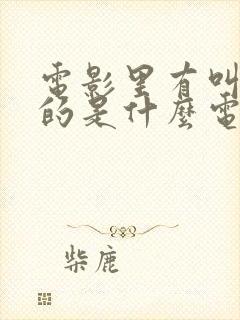 電影里有叫
的是什麼電
柴鹿